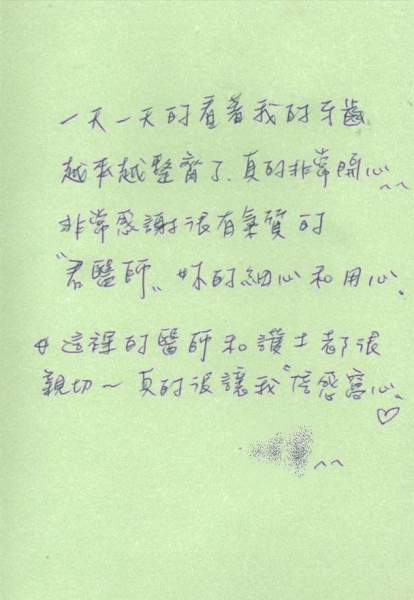 一天一天的看著我的牙齒
越來越整齊了、真的非常開心^^
非常感謝很有氣質的
"君醫師" 妳的細心和用心、
*這裡的醫師和護士都很
親切~真的很讓我"倍感窩心、
♡
^^